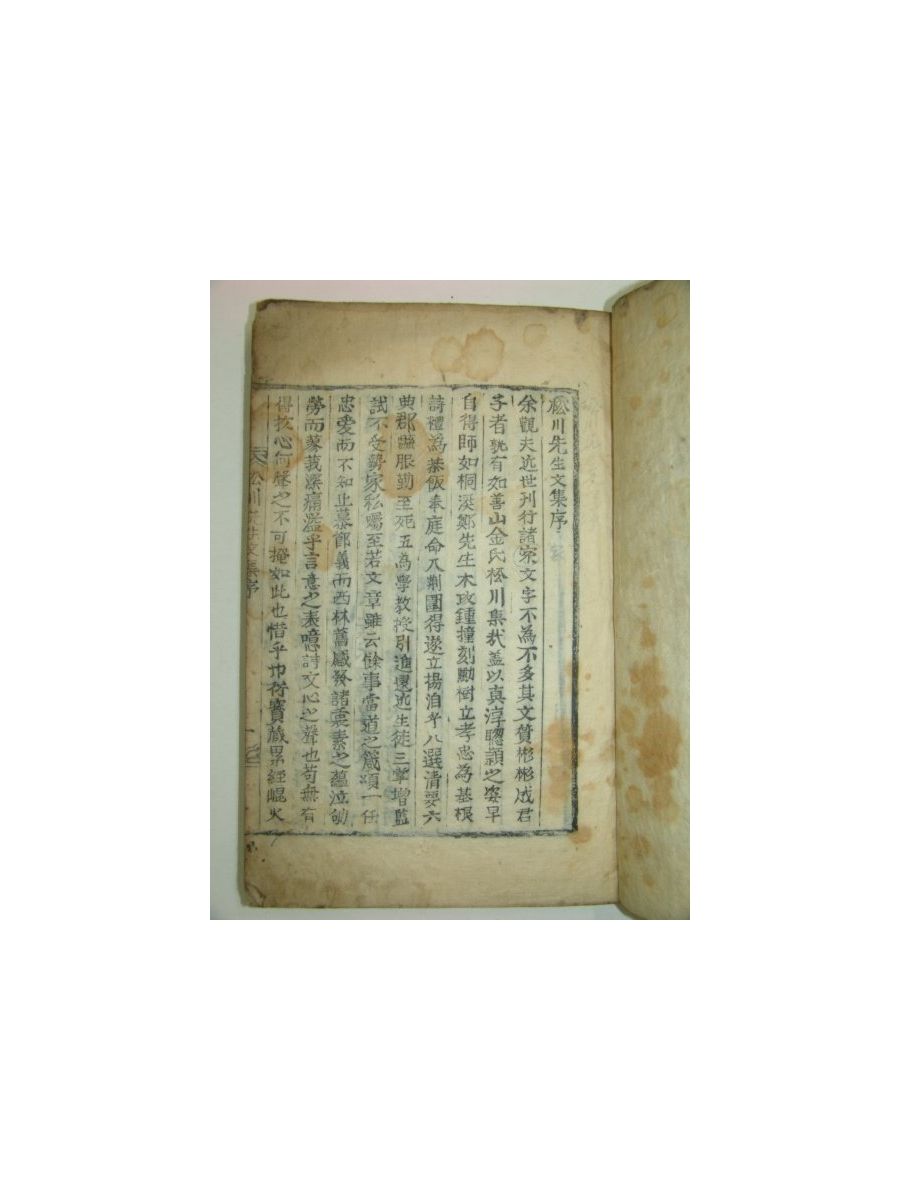 松川先生文集序
余觀夫近世刊行諸家文字不為不多其文質彬彬成君
子者孰有如善山金氏松川集哉蓋以真淳聰穎之姿早
自得師如桐溪鄭先生木攻鍾撞刻勵樹立孝忠為基根
詩禮為茶飯奉庭命入荆圍得遂立揚洎乎八選清要六
典郡 服勤至死五為學教授引進 近生徒三掌增監
試不受勢家私囑至若文章雖云餘事當道之箴頌一任
忠愛而不知止慕節義而西林舊感發諸 素之蘊泣劬
勞而蓼莪深痛溢乎言意之表噫詩文心之聲也苟無有
得於心何聲之不可掩如此也惜乎巾衍寶藏累經崐火
松川先生文集序